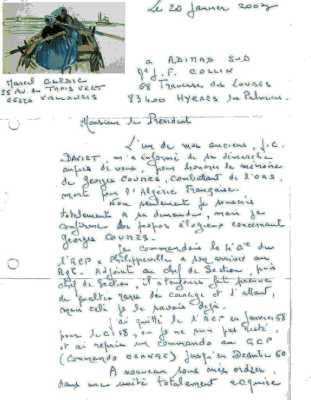 Le 20 janvier 2007
Marcel
25 Av. du TAPIS VERT
à ADIMAD SUD
Mr J. F. COLLIN
68 Traverse des Loubes
83400 HYERES les Palmiers
Monsieur le Président
L'un de mes anciens, J.C.
m'a informé de sa démarche
auprès de vous, pour honorer la mémoire
de Georges COURES, Combattant de l'OAS,
mort pour l'Algérie Française.
Non seulement je souscris
totalement à sa demande, mais je
confirme les propos élogieux concernant
Georges COURES.
Je commandais la
l'REP à Philippeville à son arrivée au
Rgt. Adjoint au chef de Section, puis
chef de Section, il a toujours fait preuve
de courage et d'allant,
mais cela je le savais déjà.
J'ai quitté le REP en janvier 58
pour le
et ai repris un commando au GCP
(Commando ) jusqu'en Décembre 60
A nouveau sous mes ordres,
dans une unité totalement acquise